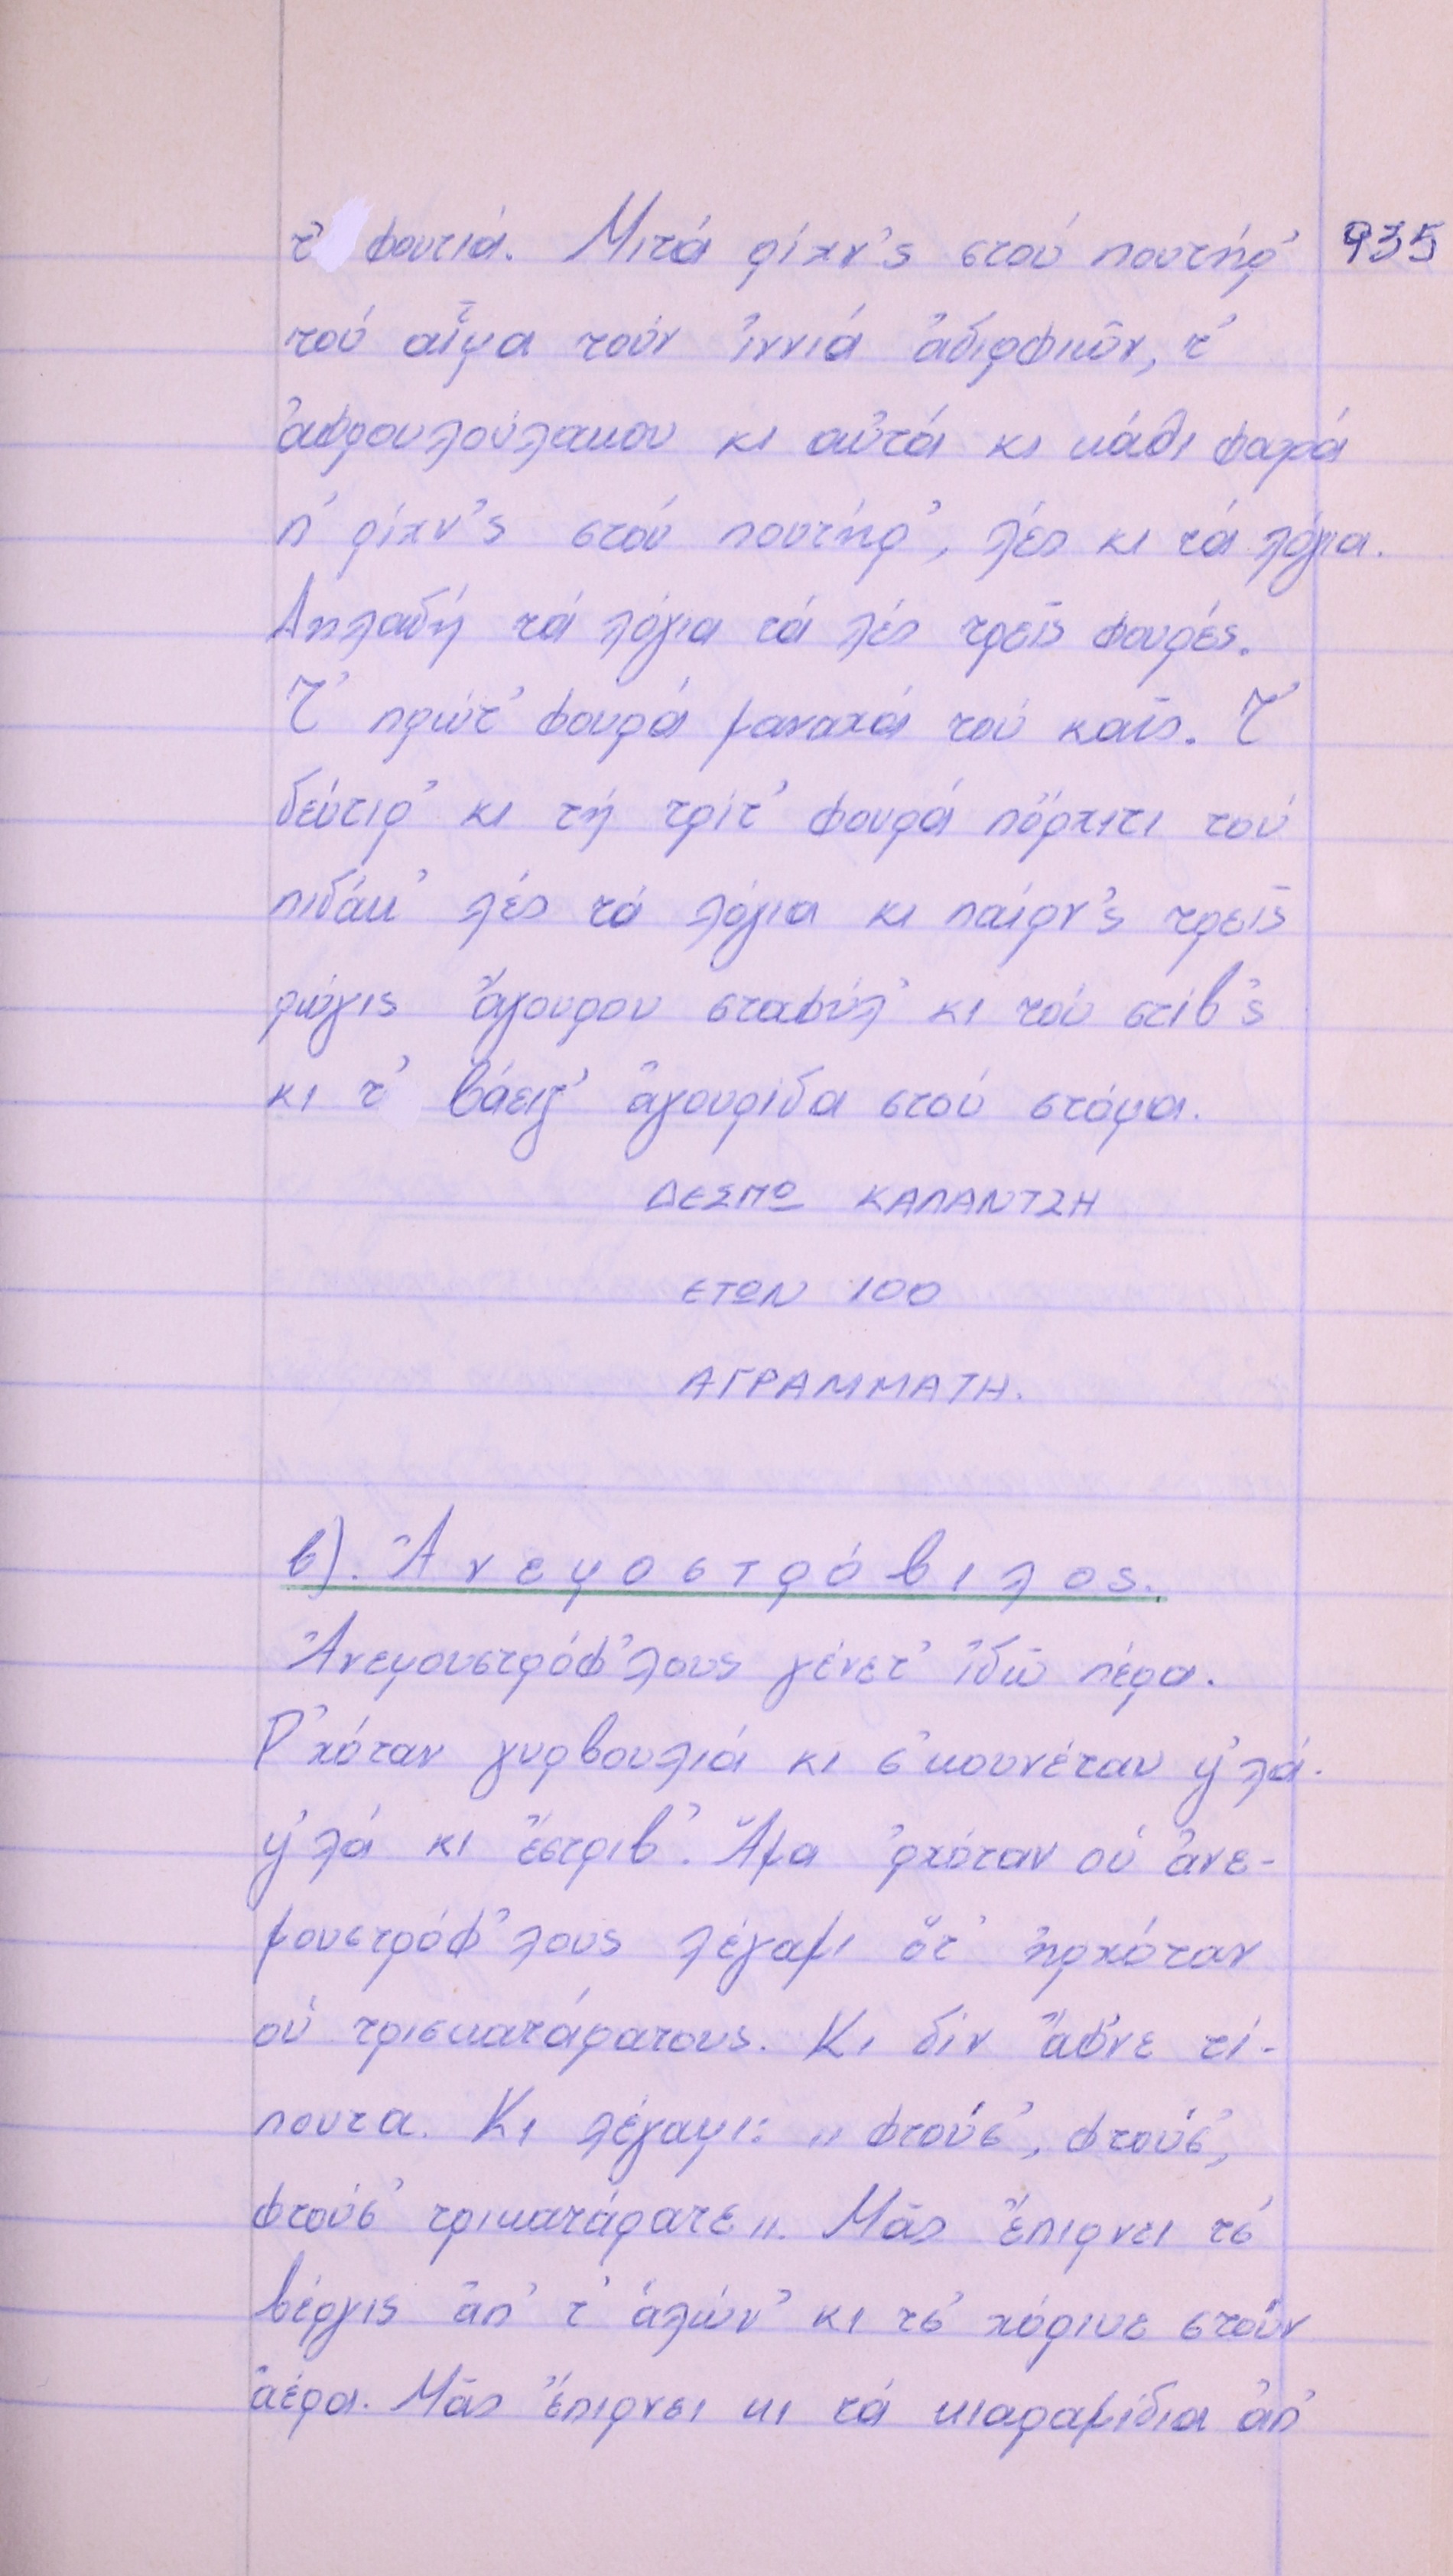 τ' φουτιά. Μιτά ρίχν'ς στού πουτήρ' 935
τού αἷμα τούν ἰννιά ἀδιρφιῶν, τ'
ἀφρουλούλακου κι αὐτά κι κάθι φαρά
π' ρίχν'ς στού πουτήρ', λές κι τά λόγια.
Δηλαδή τά λόγια τά λές τρεῖς φουρές.
Τ' πρώτ' φουρά μαναχά τού καῖς. Τ'
δεύτιρ' κι τή τρίτ' φουρά πὄρχιτι τού
πιδάκ' λές τά λόγια κι παίρν'ς τρεῖς
ρώγις ἄγουρου σταφύλ' κι τού στίβ'ς
κι τ' βάειζ' ἀγουρίδα στού στόμα.
ΔΕΣΠΩ ΚΑΛΑΝΤΖΗ
ΕΤΩΝ 100
ΑΓΡΑΜΜΑΤΗ.
β). Ἀνεμοστρόβιλος.
Ἀνεμουστρόφ'λους γένετ' ἰδῶ πέρα.
Ρ'χόταν γυρβουλιά κι σ'κουνέταν ψ'λά.
ψ'λά κι ἔστριβ'. Ἅμα 'ρχόταν οὑ ἀνε-
μουστρόφ'λους λέγαμι ὅτ' ἠρχόταν
οὑ τρισκατάρατους. Κι δίν ἄφ'νε τί-
πουτα. Κι λέγαμι: „φτούσ', φτούσ',
φτούσ' τρικατάρατε". Μᾶς ἔπιρνει τσ'
βέργις ἀπ' τ' ἁλών' κι τσ' χόριυε στούν
ἀέρα. Μᾶς ἔπιρνει κι τά κιαραμίδια ἀπ'